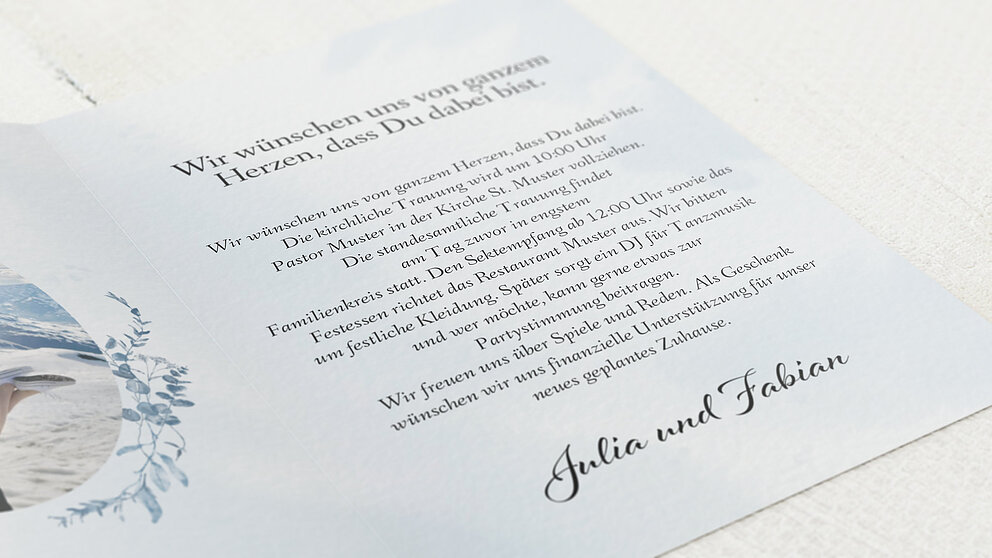 Wir wünschen uns von ganzem
Herzen, dass Du dabei bist.
Wir wünschen uns von ganzem Herzen, dass Du dabei bist.
Die kirchliche Trauung wird um 10:00 Uhr
Pastor Muster in der Kirche St. Muster vollziehen.
Die standesamtliche Trauung findet
am Tag zuvor in engstem
Familienkreis statt. Den Sektempfang ab 12:00 Uhr sowie das
Festessen richtet das Restaurant Muster aus. Wir bitten
um festliche Kleidung. Später sorgt ein DJ für Tanzmusik
und wer möchte, kann gerne etwas zur
Partystimmung beitragen.
Wir freuen uns über Spiele und Reden. Als Geschenk
wünschen wir uns finanzielle Unterstützung für unser
neues geplantes Zuhause.
Julia und Fabian